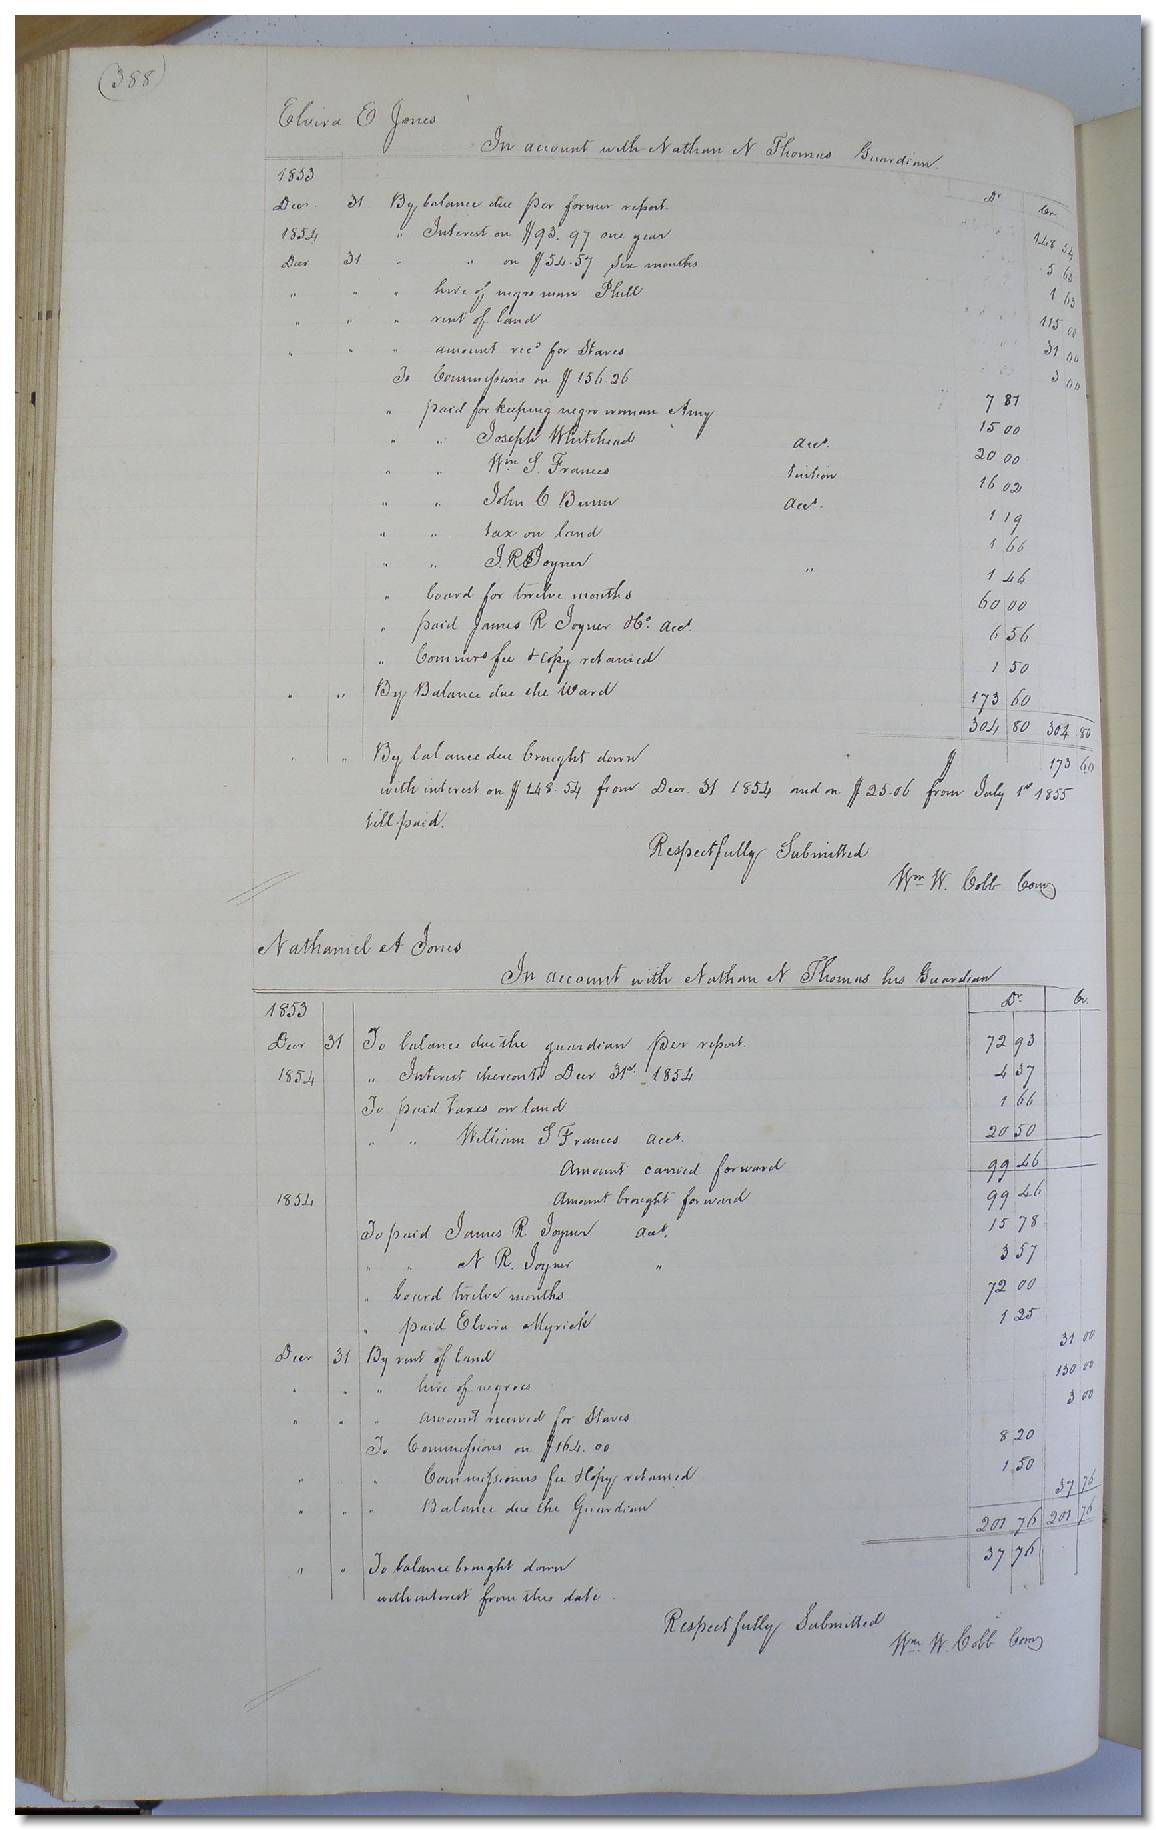 (388)
Elvira E Jones
In account with Nathan N Thomas Guardian.
1853 Dr Cr.
Decr 31 By balance due per former report. 148 54
1854 " Interest on $93.97 one year 5 63
Decr 31 " " on $54.57 six months 1 63
" " " hire of negro man Phill 115 00
" " " rent of land 31 00
" " " amount recd for Staves 3 00
To Commissions on $156.26 7 81
" paid for keeping negro woman Amy 15 00
" " Joseph Whitehead acct. 20 00
" " Wm S. Frances tuition 16 02
" " John C Bunn acct. 1 19
" " tax on land 1 66
" " J. R. Joyner " 1 46
" board for twelve months 60 00
" paid James R Joyner &Co. acct. 6 56
" Commrs fee & copy retained 1 50
" " By Balance due the Ward 173 60
304 80 304 80
" " By balance due brought down $ 173 60
with interest on $148.54 from Decr. 31 1854 and on $25.06 from July 1st 1855
till paid.
Respectfully Submitted
Wm W. Cobb Comr
Nathaniel A Jones
In account with Nathan N Thomas his Guardian
1853 Dr. Cr.
Decr 31 To balance due the guardian per report. 72 93
1854 " Interest thereonto Decr 31st 1854 4 37
To paid Taxes on land 1 66
" " William S Frances acct. 20 50
Amount carried forward 99 46
1854 Amount brought forward 99 46
To paid James R Joyner acct. 15 78
" " N R. Joyner " 3 57
" board twelve months 72 00
" paid Elvira Myrick 1 25
Decr 31 By rent of land 31 00
" " " hire of negroes 130 00
" " " amount received for Staves 3 00
To Commissions on $164.00 8 20
" " Commissioners fee & Copy retained 1 50
" " " Balance due the Guardian 37 76
201 76 201 76
" " To balance brought down 37 76
with interest from this date.
Respectfully Submitted
Wm. W. Cobb Comr